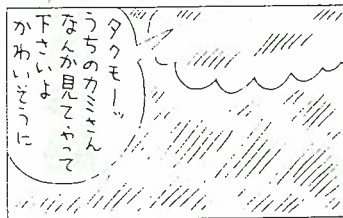 タクモーッ
うちのカミさん
なんか見てやって
下さいよ
かわいそうに